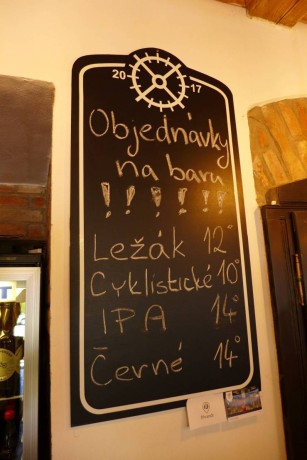 20 17
Objednávky
na baru
! ! ! ! ! !
Ležák 12°
Cyklistické 10°
IPA 14°
Černé 14°